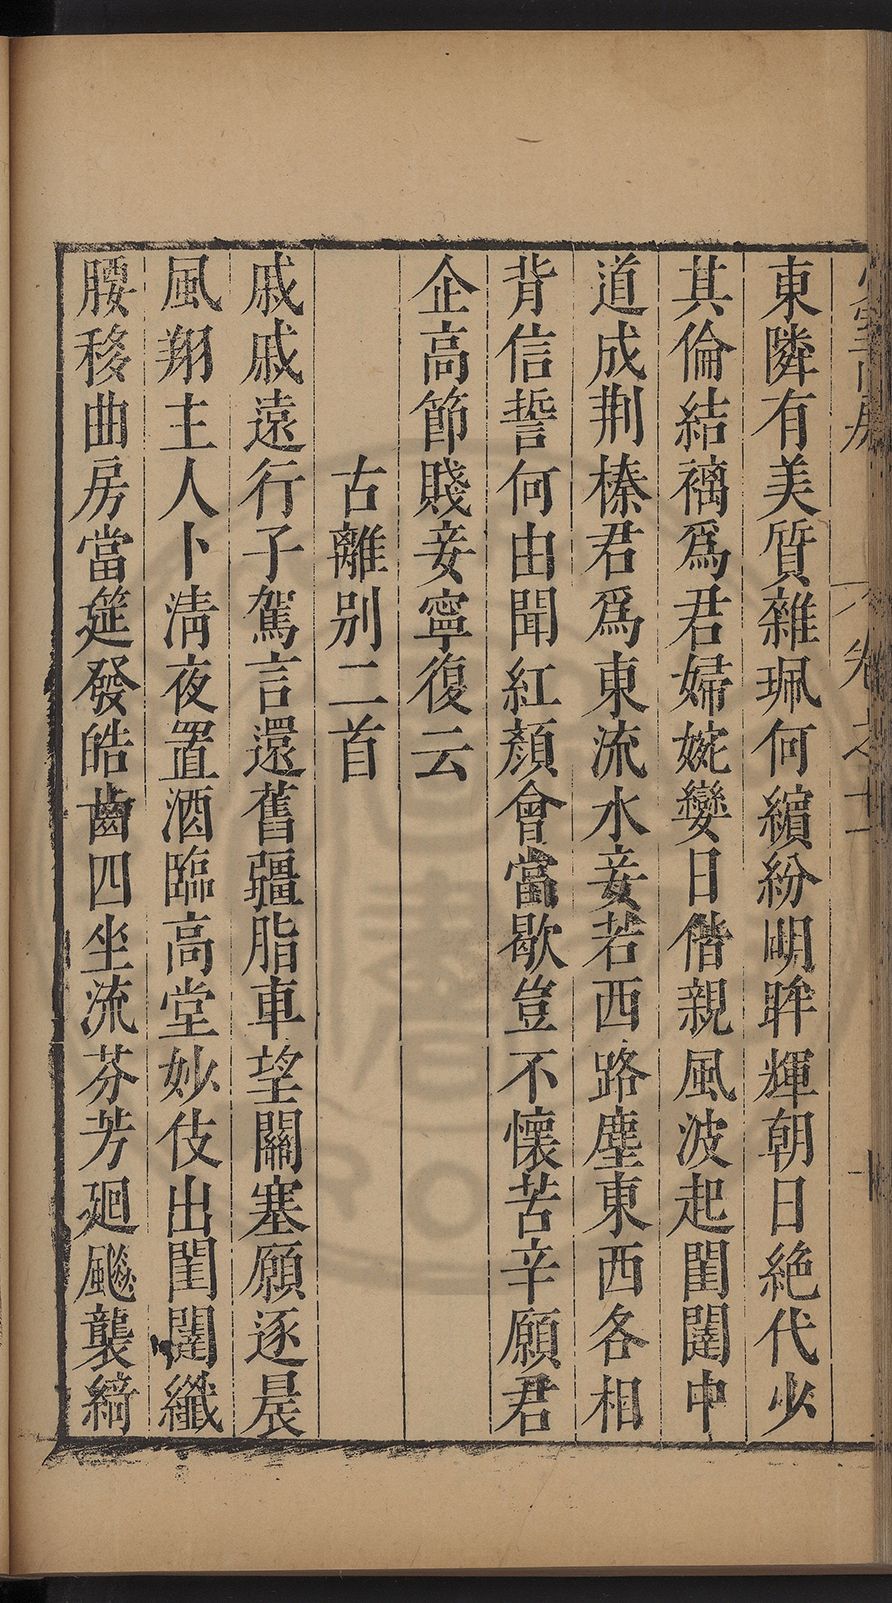 東隣有美質雜珮何繽紛明眸輝朝日絶代少
其倫結褵爲君婦婉孌日偕親風波起閨闥中
道成荆榛君爲東流水妾若西路塵東西各相
背信誓何由聞紅顏會當歇豈不懷苦辛願君
企高節賤妾寧復云
古離别二首
戚戚遠行子駕言還舊疆脂車望關塞願逐晨
風翔主人卜淸夜置酒臨高堂妙伎出閨闥纖
腰移曲房當筵發皓齒四坐流芬芳廻飈襲綺